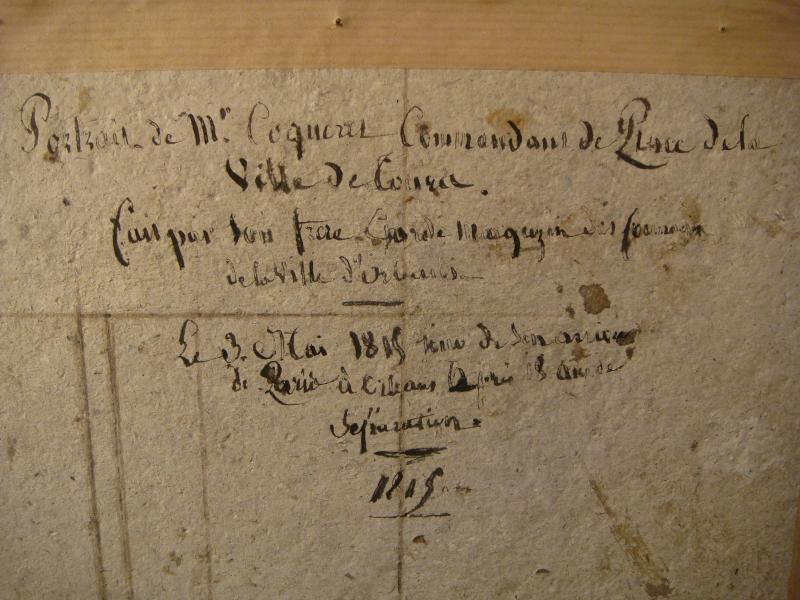 Portrait de Mr. Coqueret Commandant de Place de la
Ville de
fait par son frere Garde magazin des fourrages
de la Ville d'orleans
Le 3. Mai 1815 jour de son arrivée
de Paris à Orleans Après 18 ans de
Separation.
1815